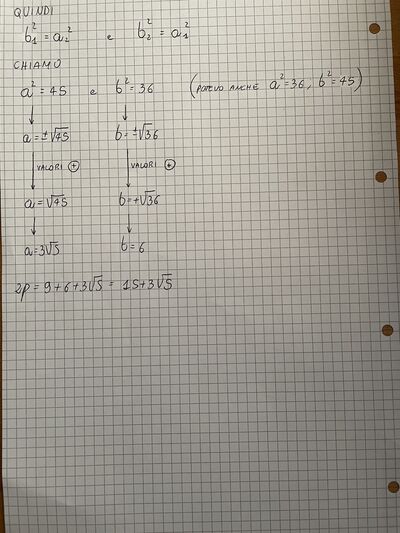 QUINDI
b₁² = a₂² e b₂² = a₁²
CHIAMO
a² = 45 e b² = 36 (POTEVO ANCHE a² = 36 ; b² = 45)
↓ ↓
a = ±√45 b = ±√36
↓ VALORI ⊕ ↓ VALORI ⊕
a = √45 b = +√36
↓ ↓
a = 3√5 b = 6
2p = 9 + 6 + 3√5 = 15 + 3√5